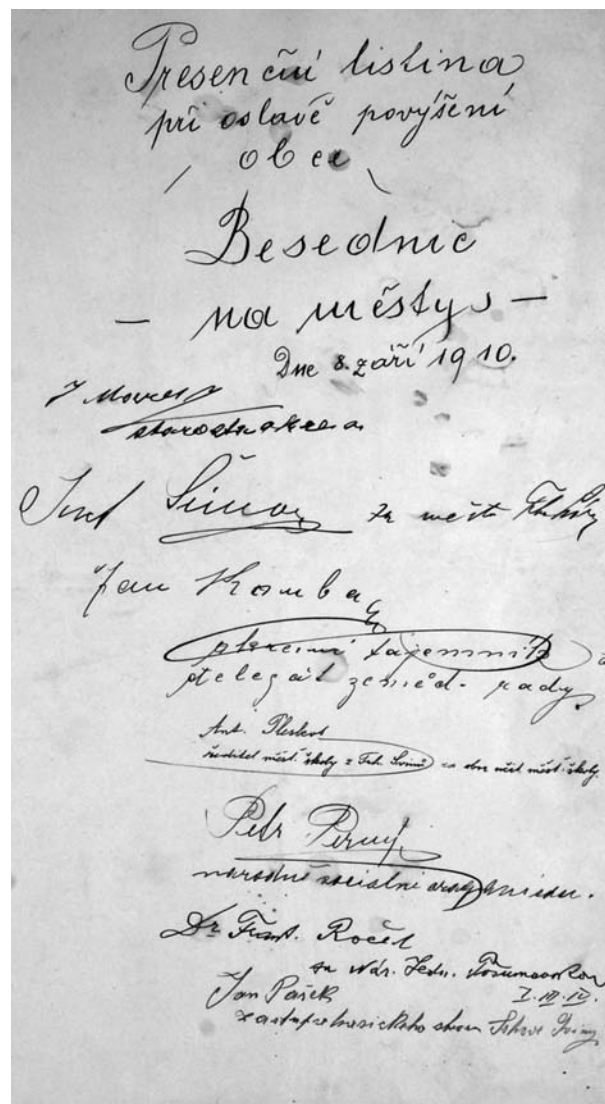 Presenční listina
při oslavě povýšení
obce
Besednic
— na městys —
Dne 8. září 1910.
starosta obce
Josef za město
Jan Kouba
obecní tajemník a
delegát zeměd. rady
Ant. Pleskot
ředitel měst. školy z Trh. Svinů za sbor měšť. školy.
Petr Perný
národně sociální
Dr Frant. Roček
za Nár. Jedn. Pošumavskou
Jan Pašek I. III. IV.
zástupce hasičského sboru Trhové Sviny